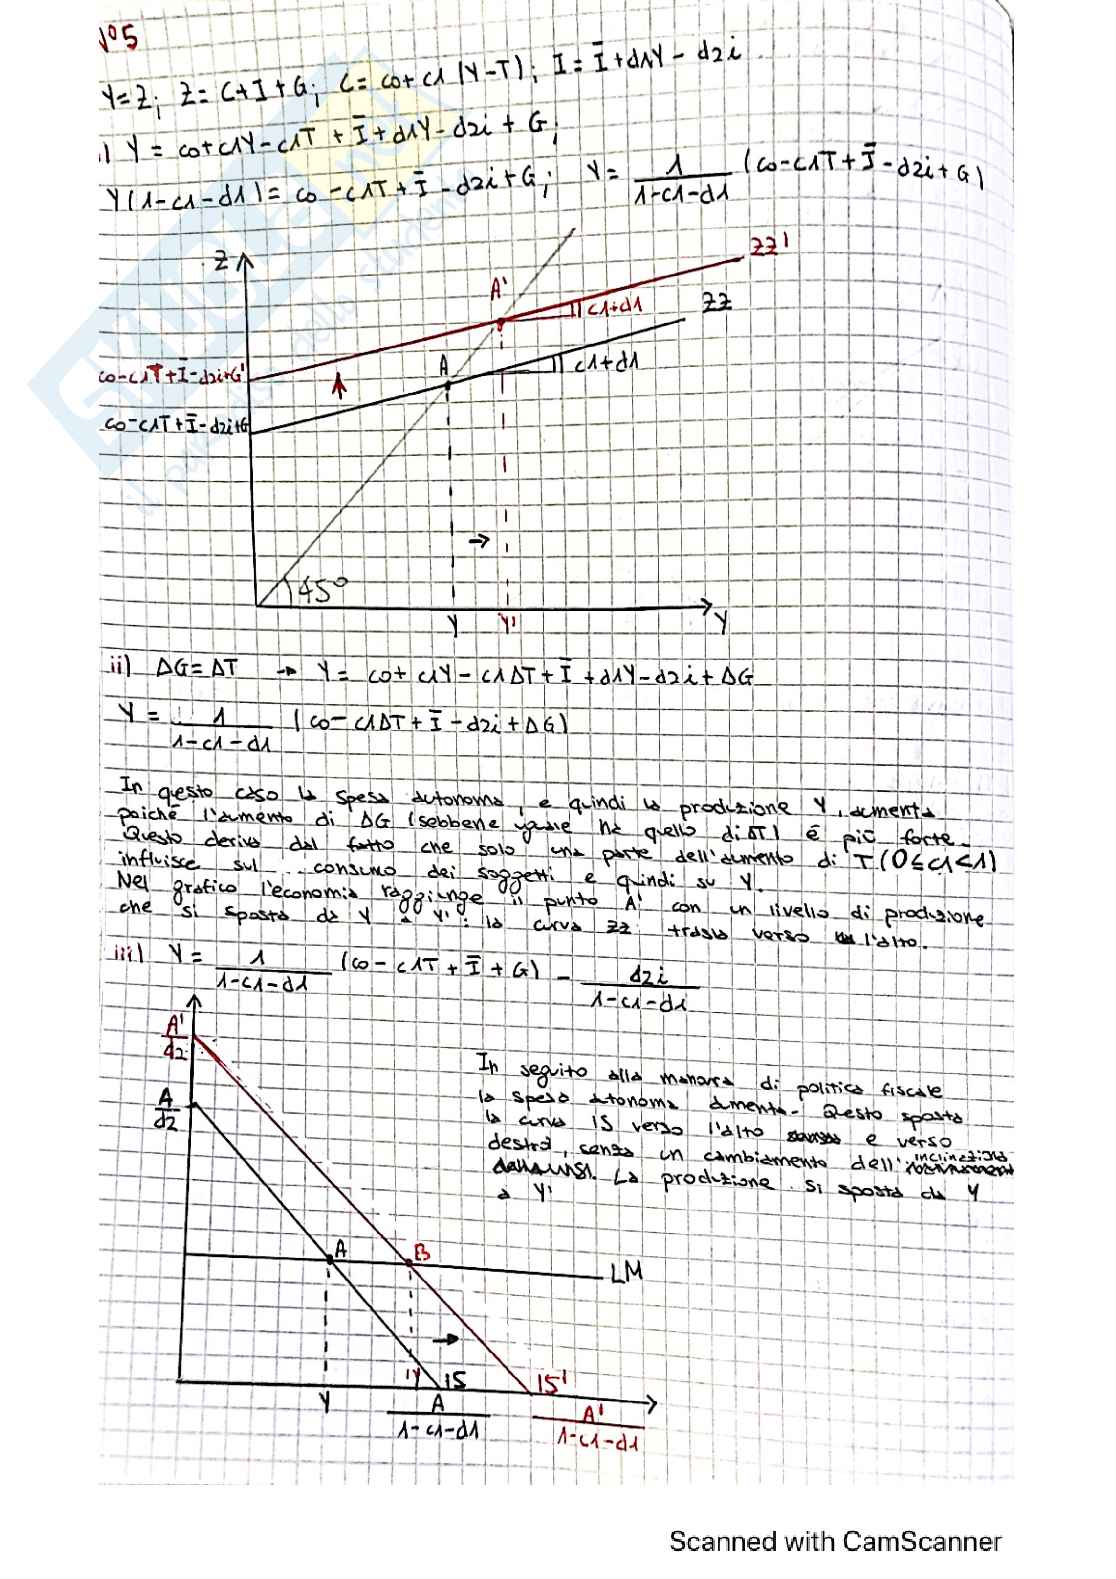 N°5
Y=Z; Z=C+I+G; C=c0+c1(Y-T); I=Ī+d1Y-d2i
i) Y=c0+c1Y-c1T+Ī+d1Y-d2i+G;
Y(1-c1-d1)=c0-c1T+Ī-d2i+G; Y=1/(1-c1-d1) (c0-c1T+Ī-d2i+G)
Z
ZZ'
A'
c1+d1
ZZ
A
c1+d1
c0-c1T+Ī-d2i+G'
c0-c1T+Ī-d2i+G
45°
Y Y' Y
ii) ΔG=ΔT → Y=c0+c1Y-c1ΔT+Ī+d1Y-d2i+ΔG
Y=1/(1-c1-d1) (c0-c1ΔT+Ī-d2i+ΔG)
In questo caso la spesa autonoma, e quindi la produzione Y, aumenta
poiché l'aumento di ΔG (sebbene quello di ΔT) è più forte.
Questo deriva dal fatto che solo una parte dell'aumento di T (0≤c1<1)
influisce sul consumo dei soggetti e quindi su Y.
Nel grafico l'economia raggiunge il punto A' con un livello di produzione
che si sposta da Y a Y': la curva ZZ trasla verso l'alto.
iii) Y=1/(1-c1-d1) (c0-c1T+Ī+G) - d2i/(1-c1-di)
A'/d2
A/d2
In seguito alla manovra di politica fiscale
la spesa autonoma aumenta. Questo sposta
la curva IS verso l'alto e verso
destra, senza un cambiamento dell'inclinazione
La produzione si sposta da Y
a Y'
A B
LM
Y 'Y IS IS'
A/(1-c1-d1) A'/(1-c1-d1)
Scanned with CamScanner